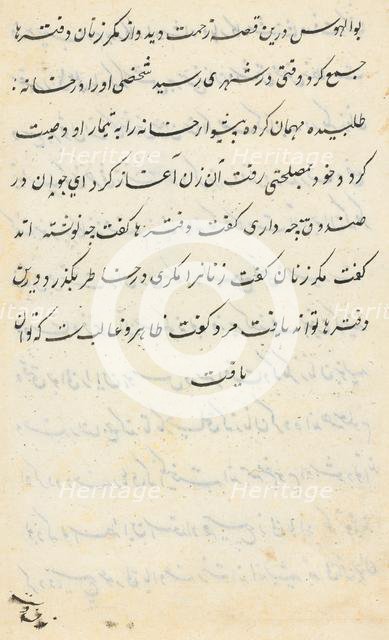 بوالهوس درین قصه زحمت دید و از مکر زنان دفترها
جمع کرد وقتی در شهری رسید شخصی او را در خانه
طلبیده مهمان کرده پیشوا خانه را به تیمار او وصیت
کرد و خود بمصلحتی رفت آن زن آغاز کرد ای جوان در
صندوق چه داری گفت دفترها گفت چه نوشته اند
گفت مکر زنان گفت زنانرا مکری در خاطر بگذرد درین
دفترها تواند یافت مرد گفت ظاهر و غالب ست که توان
یافت
Heritage
Heritage
Heritage
Heritage
Heritage
Heritage